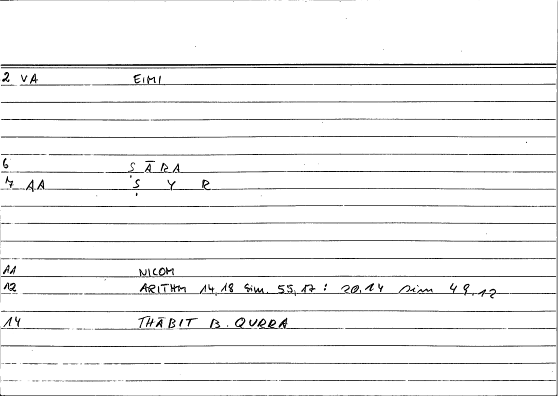 2 VA EIMI
6 ṢĀRA
7 AA Ṣ Y R
AA NICOM
12 ARITHM 14,18 sim. 55,17 : 20.14 sim 49.12
14 THĀBIT B. QURRA